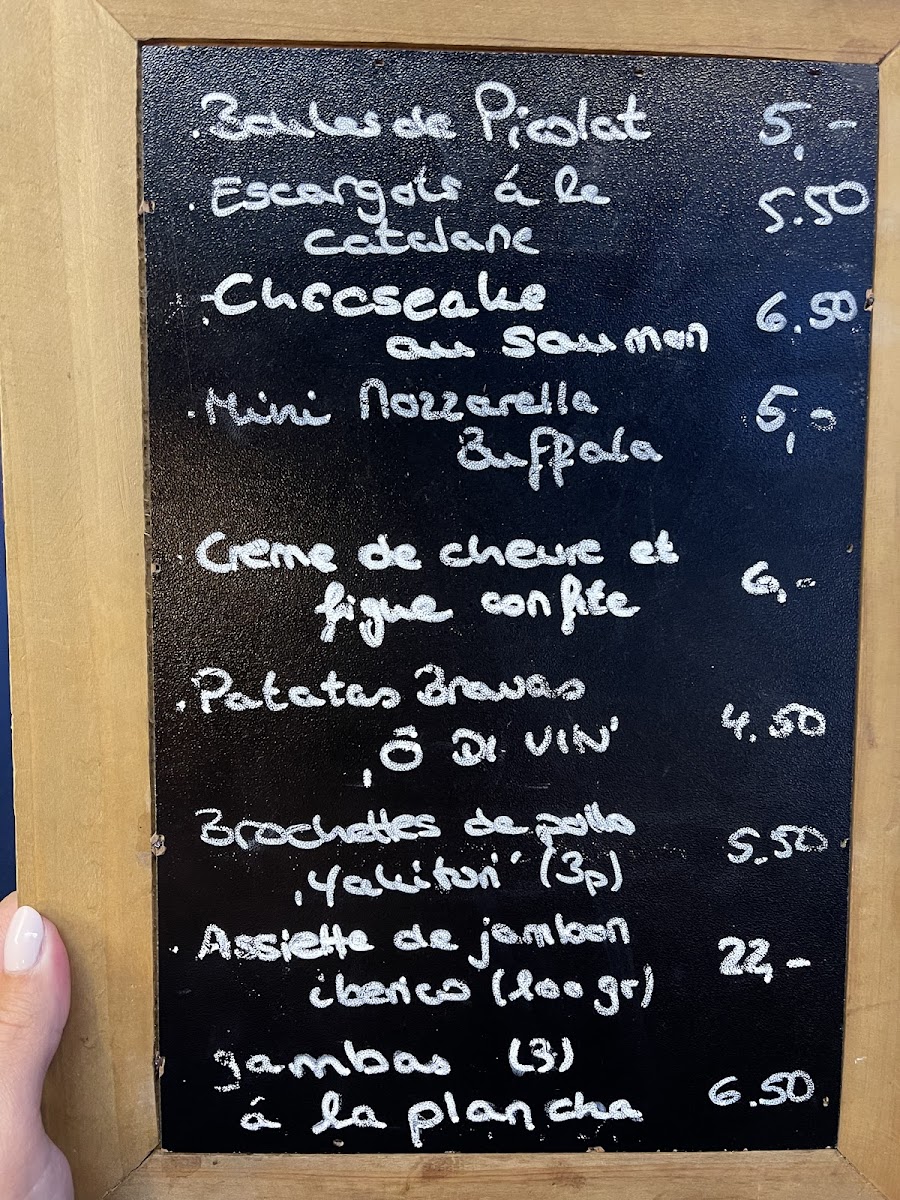 . Boules de Picolat 5,-
. Escargots á la 5.50
catalane
. Cheesecake 6.50
au saumon
. Mini Mozzarella 5,-
Buffala
. Creme de chevre et 6,-
figue confite
. Patatas Bravas 4.50
,Ô DI VIN'
Brochettes de pollo 5.50
,Yakitori' (3p)
. Assiette de jambon 22,-
iberico (100 gr)
gambas (3)
á la plancha 6.50